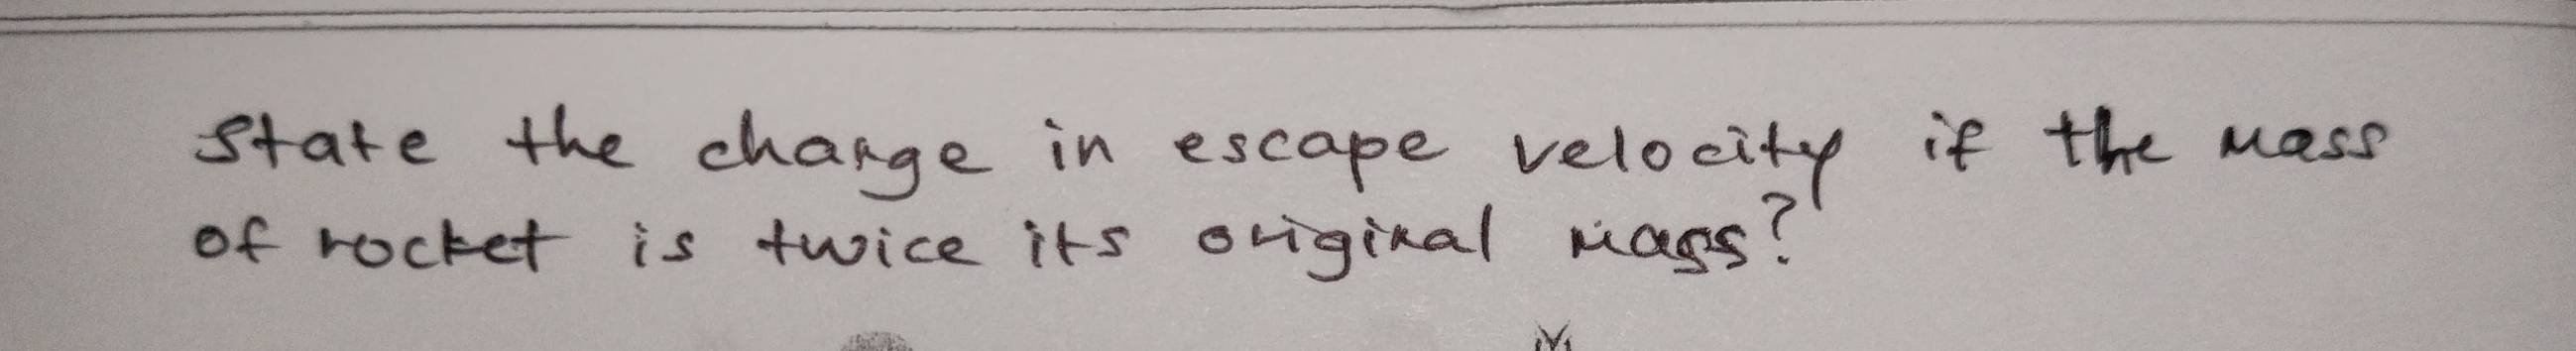 State the change in escape velocity if the mass
of rocket is twice its original mass?